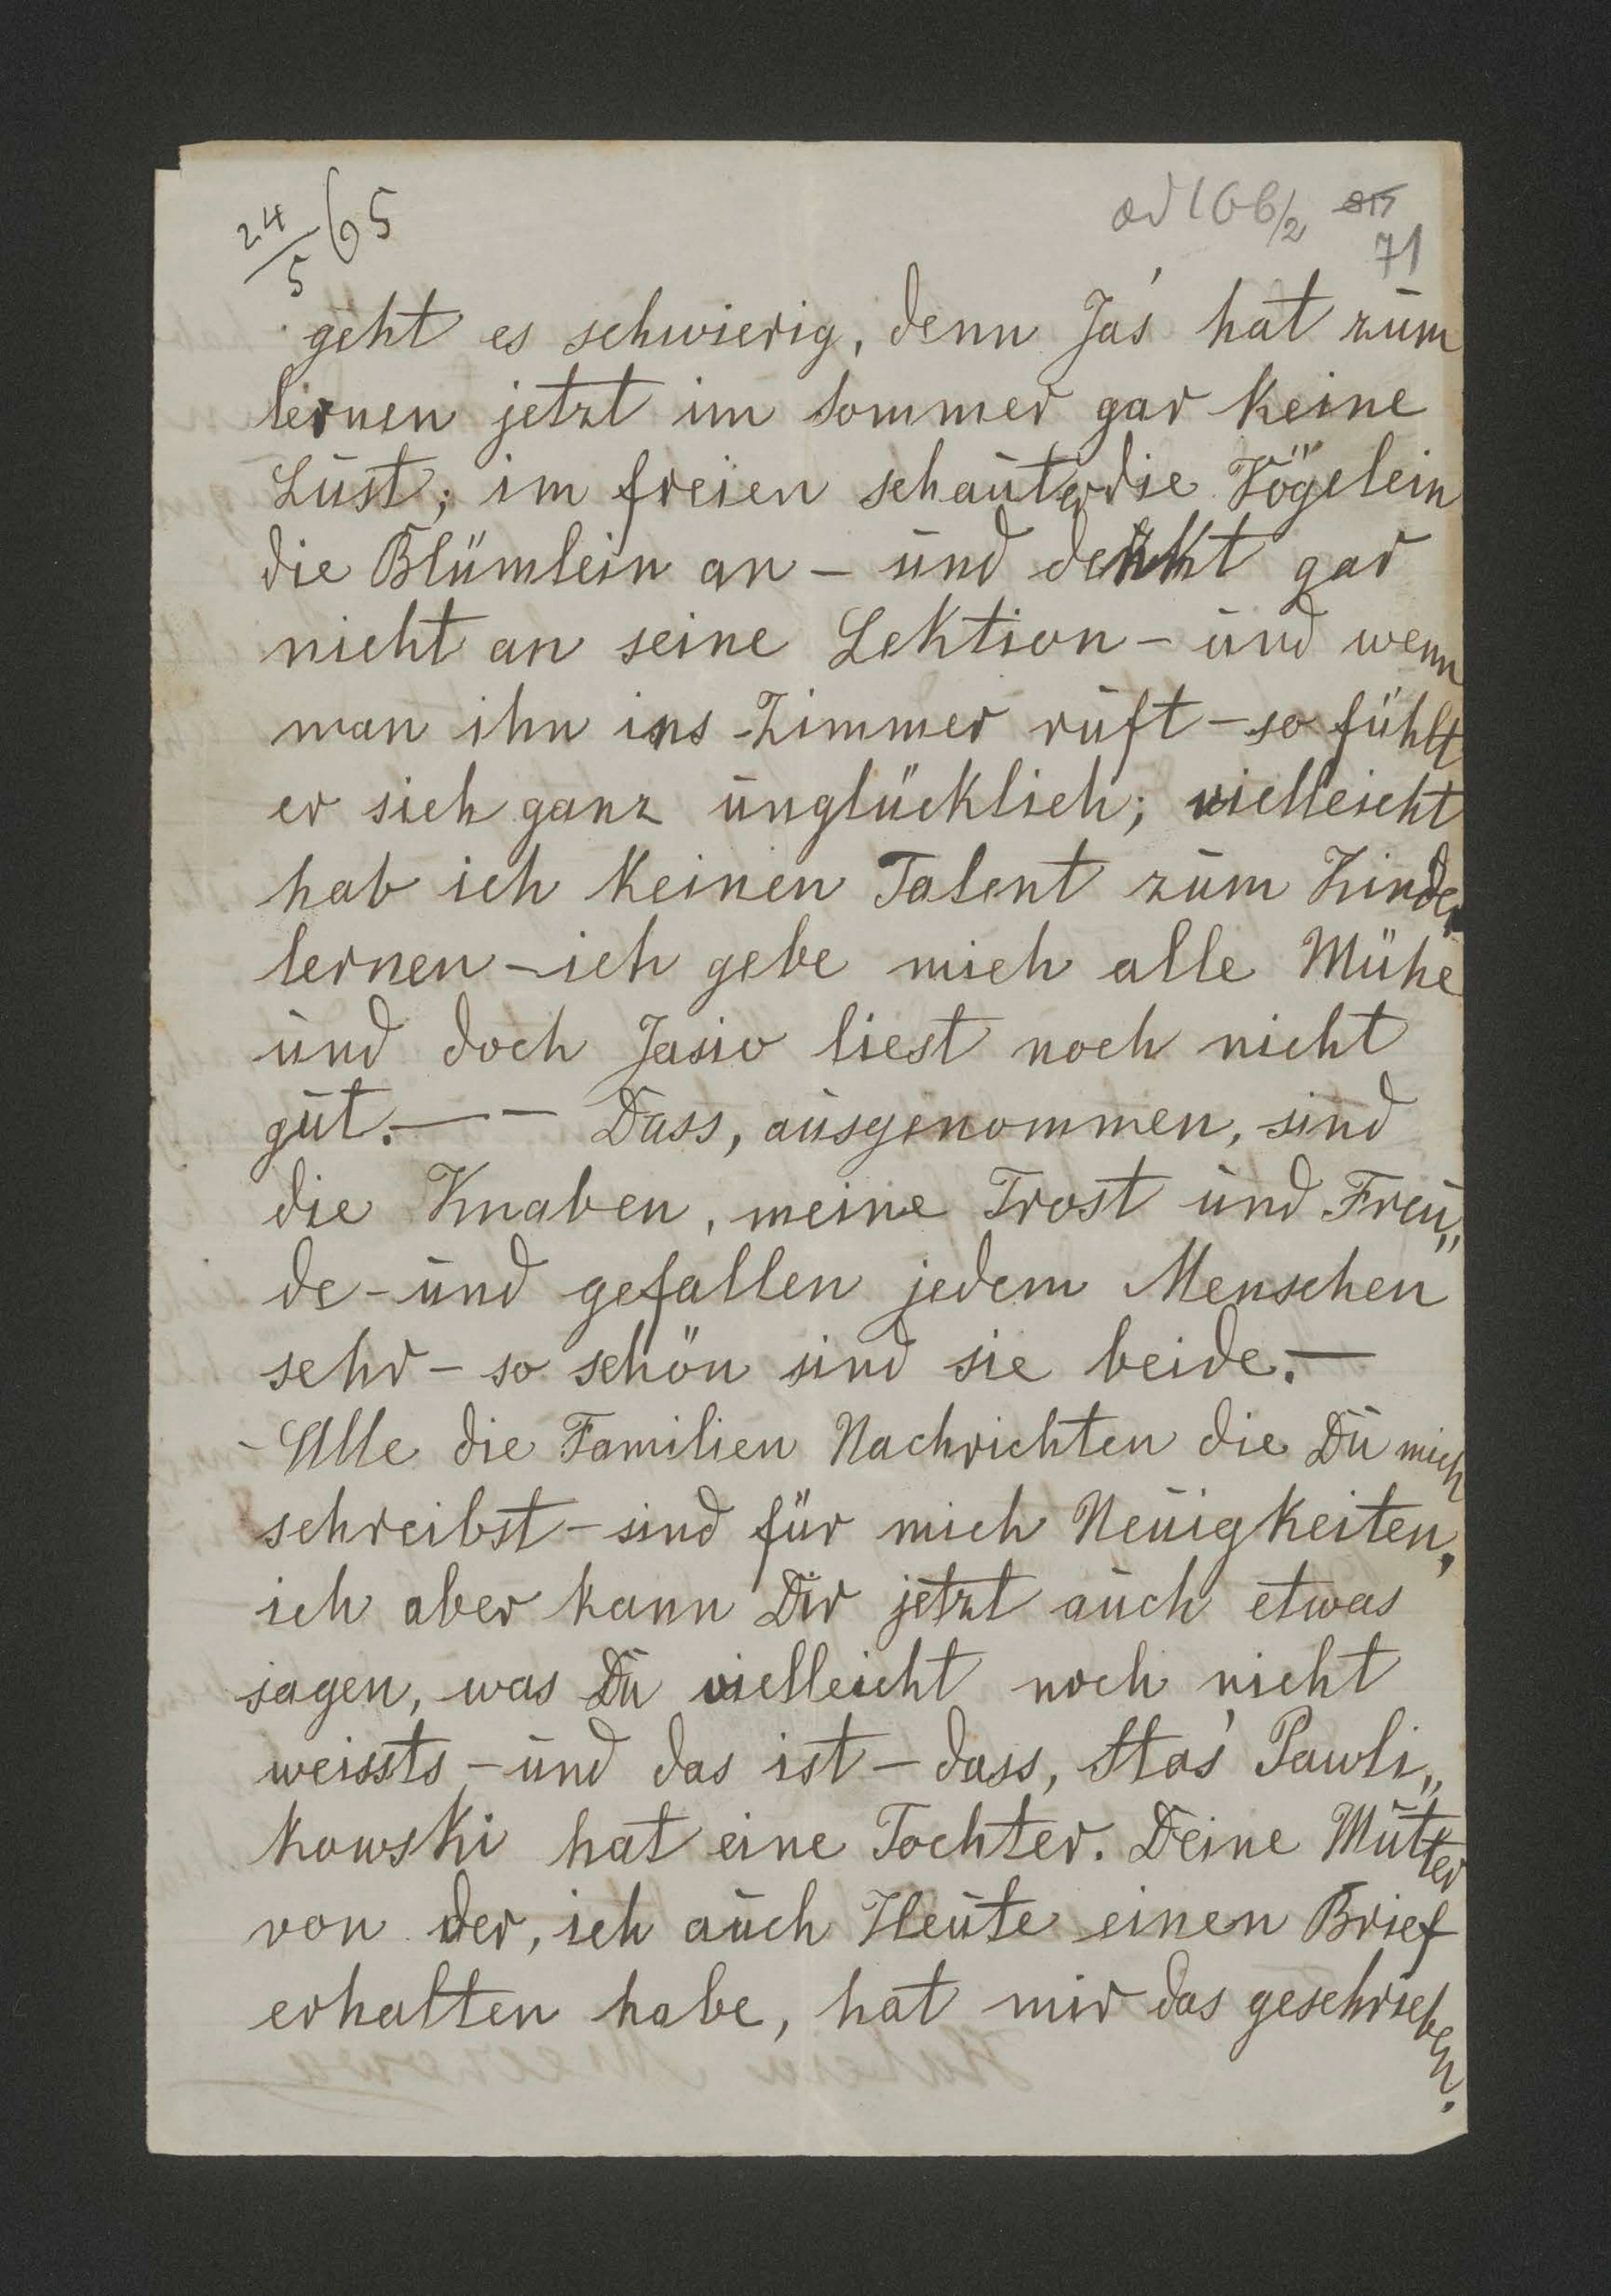 24/5 65
ad 166/2
71
geht es schwierig, denn Jaś hat zum
lernen jetzt im Sommer gar keine
Lust; im freien schaut er die Vögelein
die Blümlein an – und denkt gar
nicht an seine Lektion – und wenn
man ihn ins Zimmer ruft – so fühlt
er sich ganz unglücklich; vielleicht
hab ich keinen Talent zum Kinder
lernen – ich gebe mich alle Mühe
und doch Jasio liest noch nicht
gut. — – Dass, ausgenommen, sind
die Knaben, meine Trost und Freu„
de – und gefallen jedem Menschen
sehr – so schön sind sie beide. —
– Alle die Familien Nachrichten die Du mich
schreibst – sind für mich Neuigkeiten,
ich aber kann Dir jetzt auch etwas
sagen, was Du vielleicht noch nicht
weissts – und das ist – dass, Staś Pawli„
kowski hat eine Tochter. Deine Mutter
von der, ich auch Heute einen Brief
erhalten habe, hat mir das geschrieben.